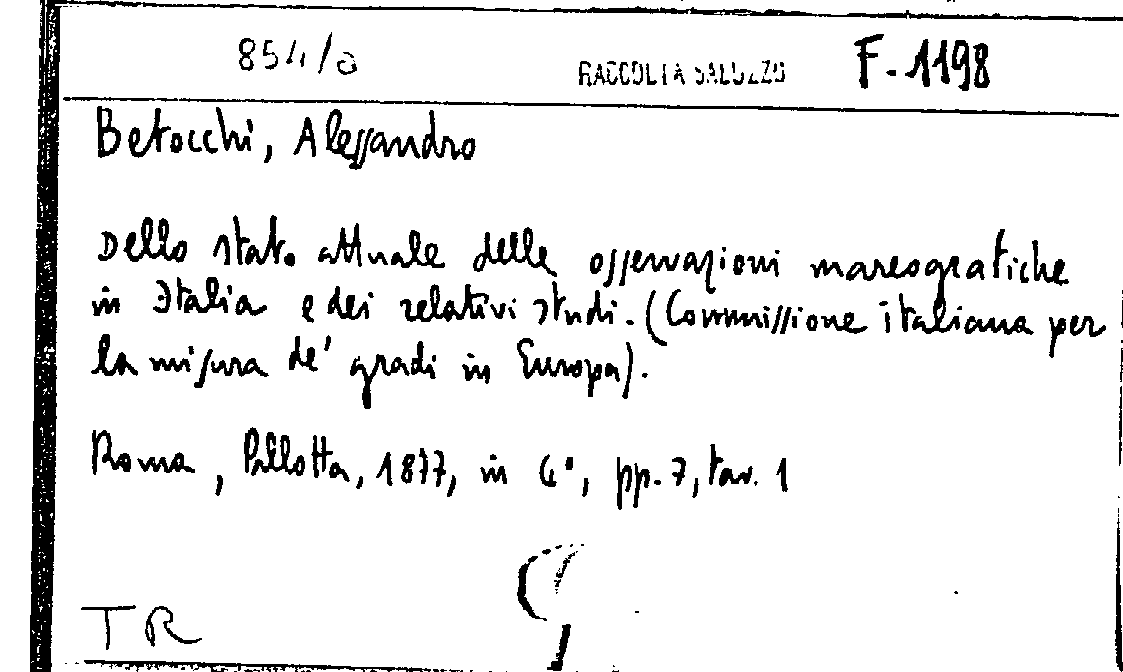 854/a RACCOLTA SALUZZO F-1198
Betocchi, Alessandro
Dello stato attuale delle osservazioni mareografiche
in Italia e dei relativi studi. (Commissione italiana per
la misura de' gradi in Europa).
Roma, Pallotta, 1877, in 4°, pp. 7, tav. 1
TR